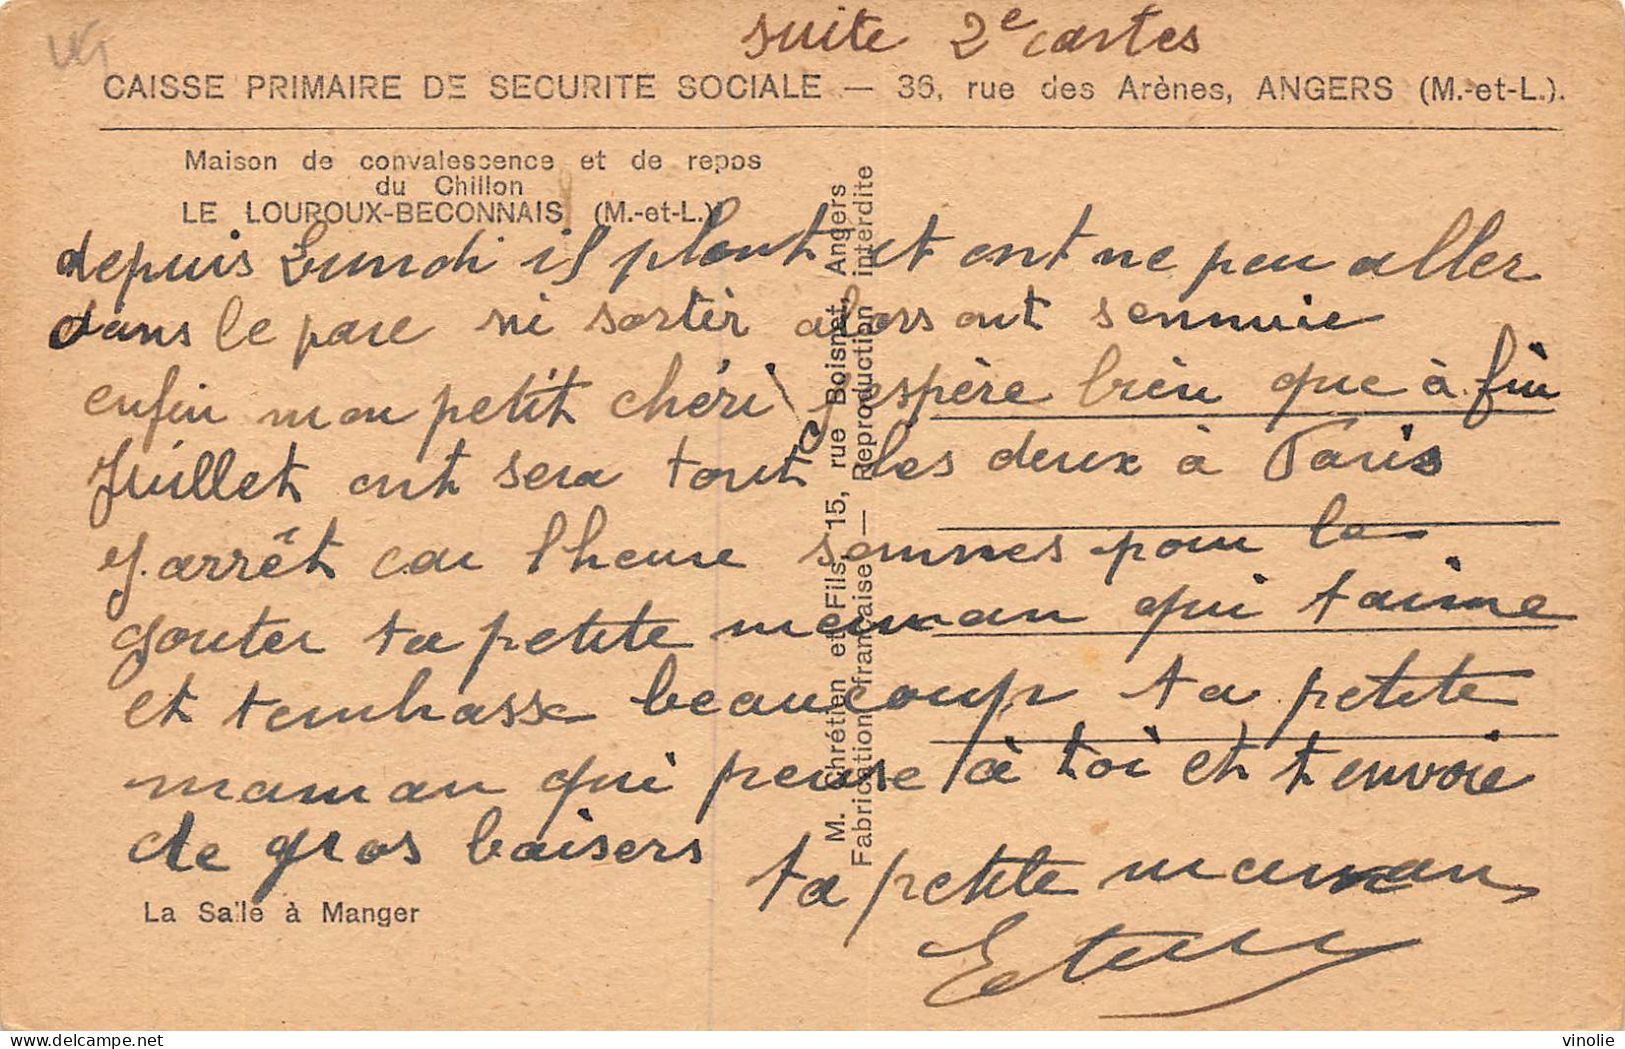 suite 2e cartes
CAISSE PRIMAIRE DE SECURITE SOCIALE — 36, rue des Arènes, ANGERS (M.-et-L.).
Maison de convalescence et de repos
du Chillon
LE LOUROUX-BECONNAIS (M.-et-L.)
depuis Lundi il pleut et ont ne peu aller
dans le parc ni sortir alors ont sennuie
enfin mon petit chéri j'espère bien que à fin
Juillet ont sera tout les deux à Paris
J. arrêt car lheure sonnes pour le
gouter ta petite maman qui taime
et tembasse beaucoup ta petite
maman qui pense à toi et t envoie
de gros baisers
ta petite maman
La Salle à Manger
M. Chrétien et Fils, 15, rue Boisnet, Angers
Fabrication française — Reproduction interdite
vinolie